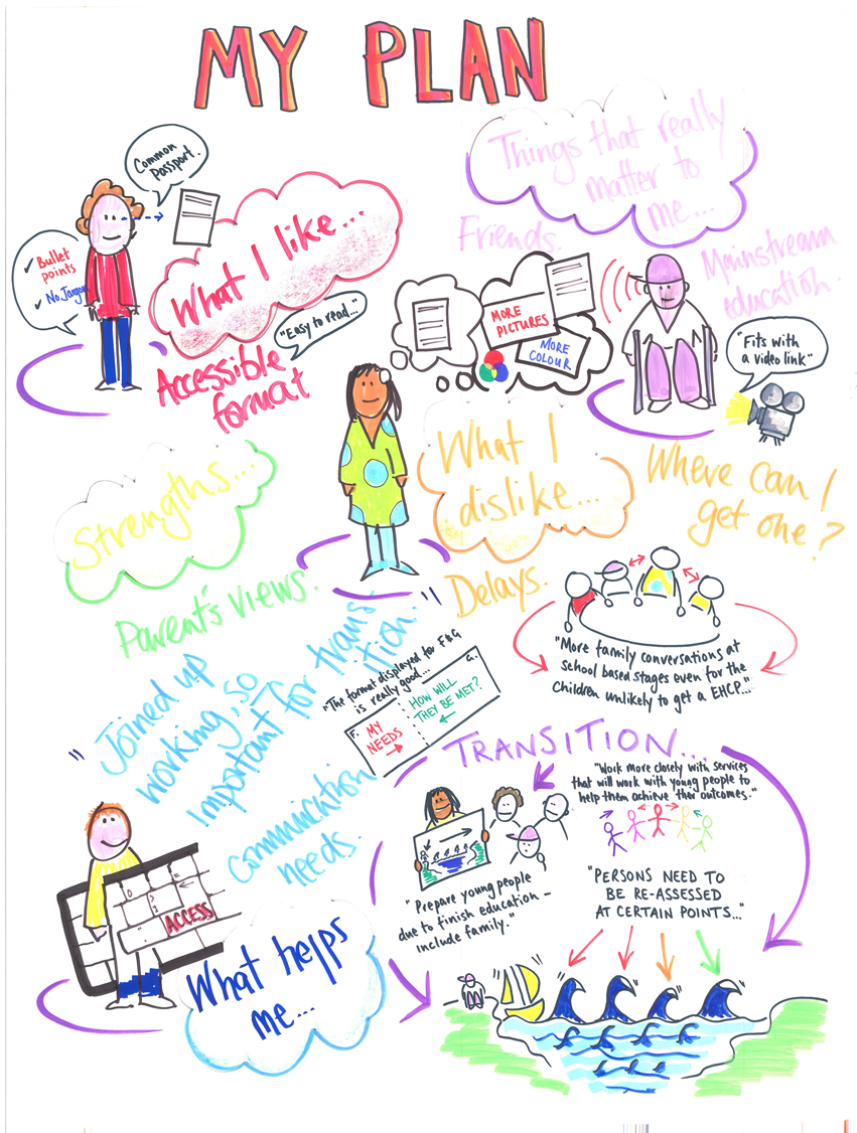 MY PLAN
Common
Passport.
What I like...
✓ Bullet
points
✓ No Jargon
"Easy to read..."
Accessible
format
Things that really
matter to
me...
Friends.
Mainstream
education.
MORE
PICTURES
MORE
COLOUR
"Fits with
a video link"
Strengths...
Parent's Views.
What I
dislike...
Delays.
Where can I
get one?
"More family conversations at
school based stages even for the
Children unlikely to get a EHCP..."
"Joined up
working, so
important for trans-
ition."
"The format displayed for F&G
is really good...
F.
MY
NEEDS
G.
HOW WILL
THEY BE MET?
Communication
needs.
ACCESS
What helps
me...
TRANSITION...
"Work more closely with services
that will work with young people to
help them achieve ther outcomes."
"Prepare young people
due to finish education -
include family."
"PERSONS NEED TO
BE RE-ASSESSED
AT CERTAIN POINTS..."